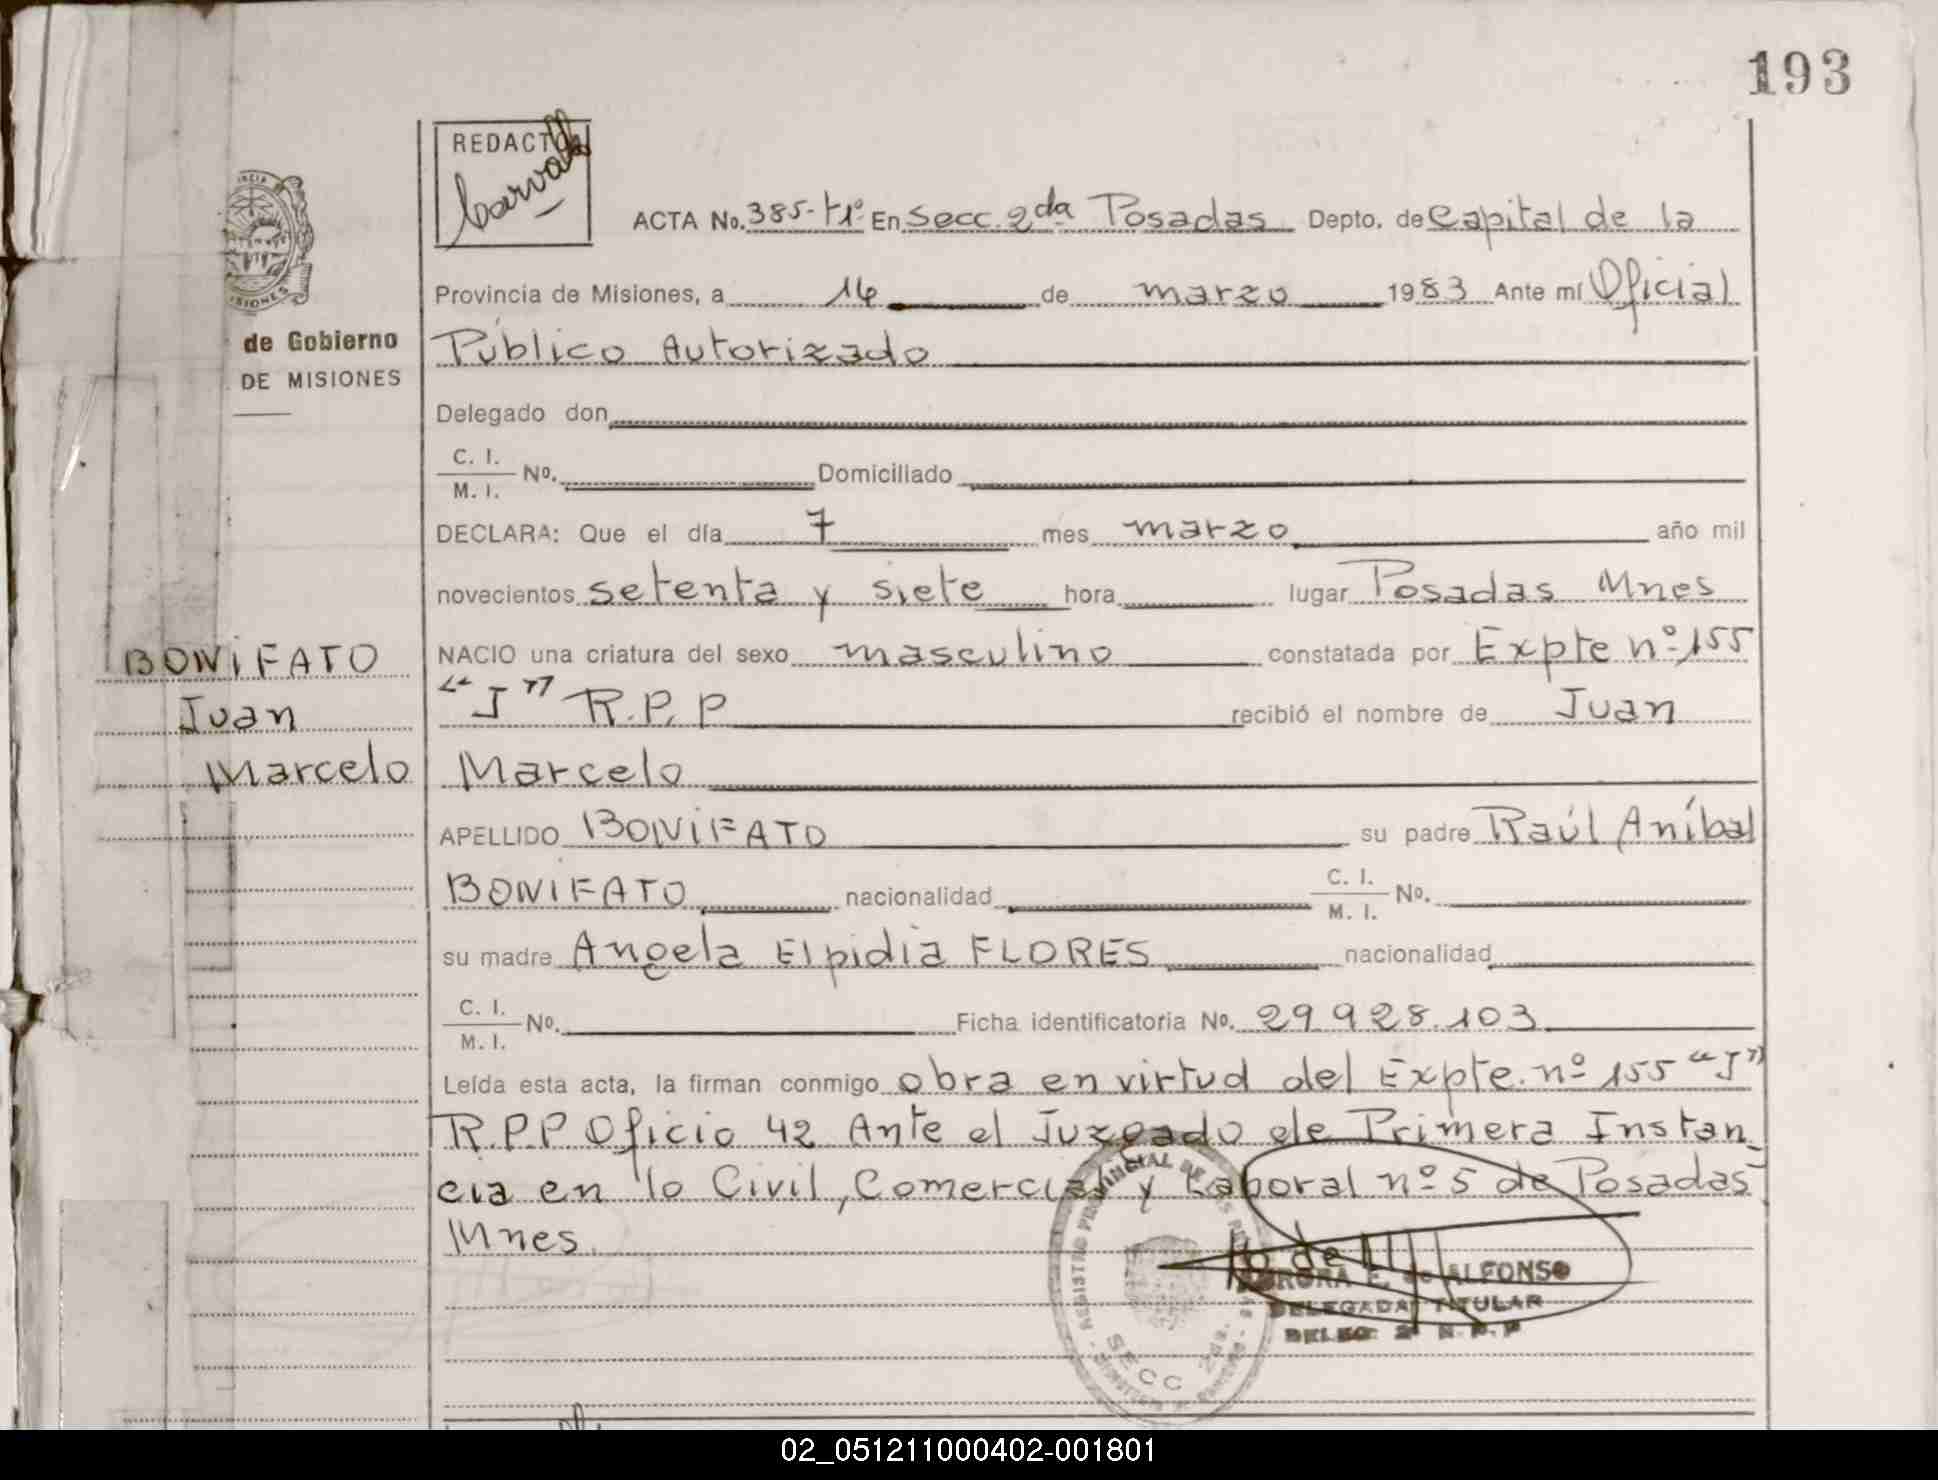 193
REDACTOR
Carvallo
ACTA No. 385-t1º En Secc. 2da Posadas Depto. de Capital de la
Provincia de Misiones, a 14 de marzo 1983 Ante mí Oficial
Público Autorizado
de Gobierno
DE MISIONES
Delegado don
C. I.
M. I. No. Domiciliado
DECLARA: Que el día 7 mes marzo año mil
novecientos setenta y siete hora lugar Posadas Mnes
BONIFATO
Juan
Marcelo
NACIO una criatura del sexo masculino constatada por Expte nº 155
"J" R.P.P recibió el nombre de Juan
Marcelo
APELLIDO BONIFATO su padre Raúl Aníbal
BONIFATO nacionalidad C. I. M. I. No.
su madre Angela Elpidia FLORES nacionalidad
C. I.
M. I. No. Ficha identificatoria No. 29928.103
Leída esta acta, la firman conmigo obra en virtud del Expte. nº 155 "J"
R.P.P Oficio 42 Ante el Juzgado de Primera Instan
cia en lo Civil, Comercial y Laboral nº 5 de Posadas
Mnes.
REGISTRO PROVINCIAL DE LAS
SECC 2da.
AURORA E. de ALFONSO
DELEGADA TITULAR
DELEG. 2ª R.P.P
02_051211000402-001801